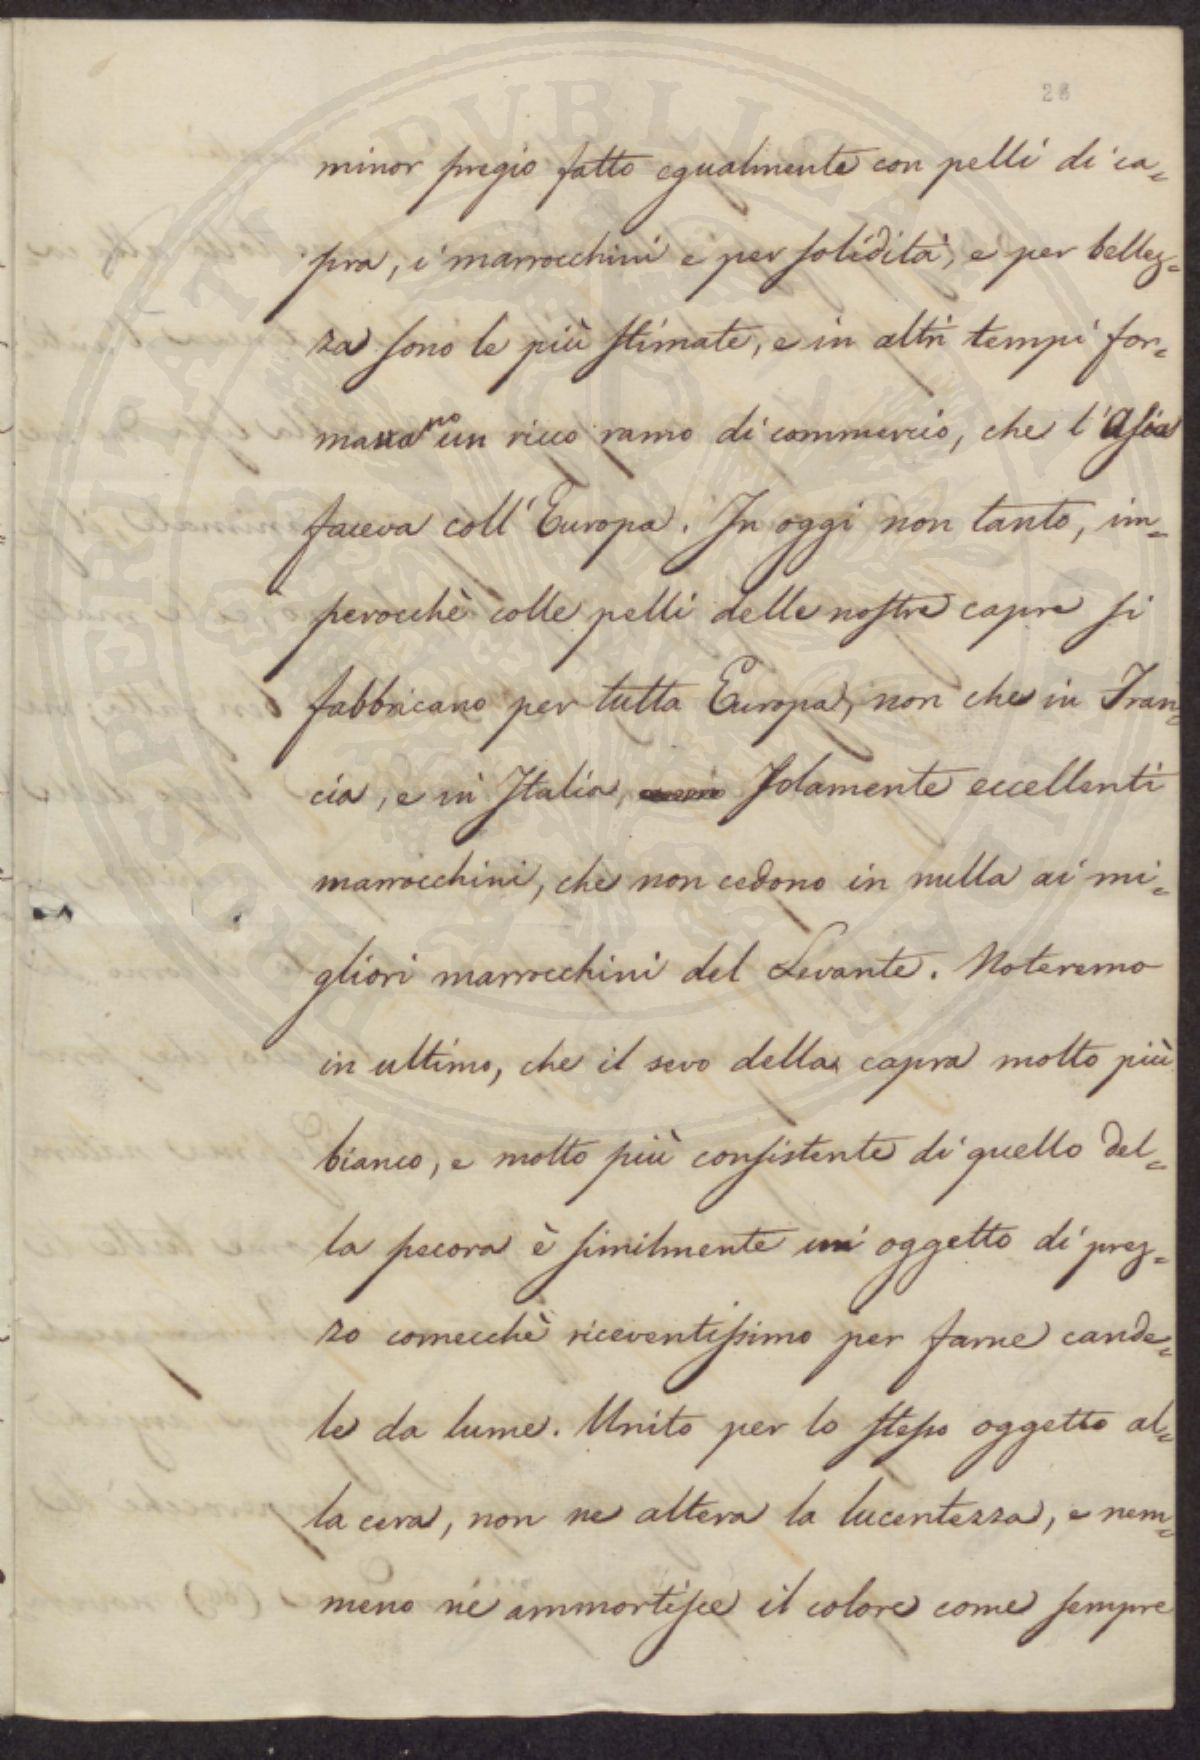 26
minor pregio fatto egualmente con pelli di ca=
pra, i marrocchini e per solidità, e per bellez=
za sono le più stimate, e in altri tempi for=
mavano un ricco ramo di commercio, che l'Asia
faceva coll'Europa. In oggi non tanto, im=
perocchè colle pelli delle nostre capre si
fabbricano per tutta Europa, non che in Fran=
cia, e in Italia, solamente eccellenti
marrocchini, che non cedono in nulla ai mi=
gliori marrocchini del Levante. Noteremo
in ultimo, che il sevo della capra molto più
bianco, e molto più consistente di quello del=
la pecora è similmente un oggetto di prez=
zo comecchè riceventissimo per farne cande=
le da lume. Unito per lo stesso oggetto al=
la cera, non ne altera la lucentezza, e nem=
meno ne ammortisce il colore come sempre